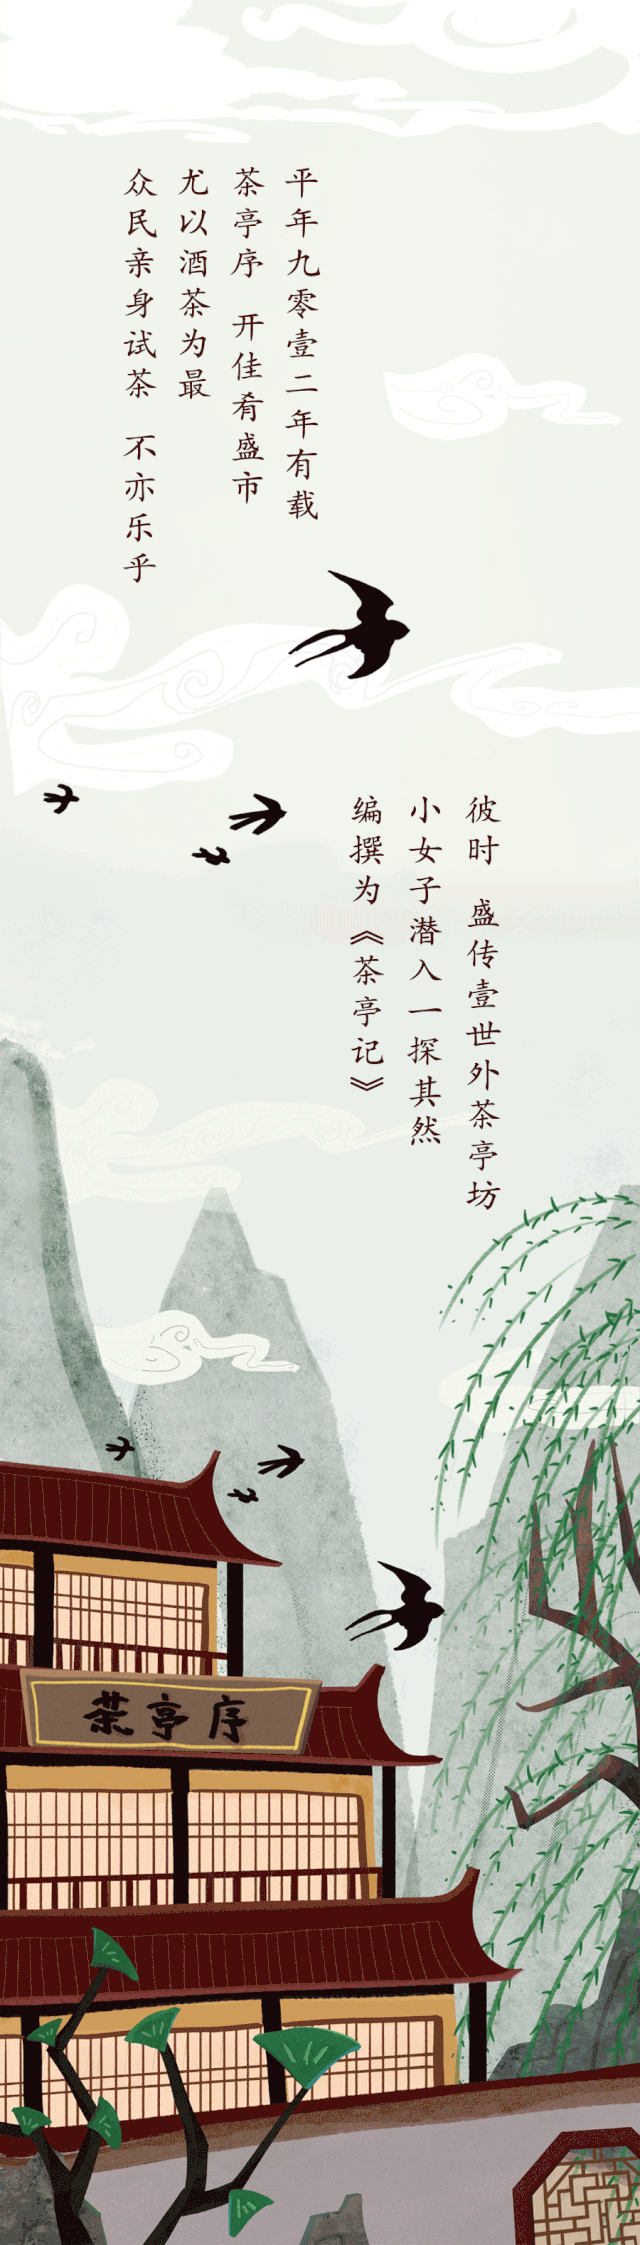 平年九零壹二年有载
茶亭序 开佳肴盛市
尤以酒茶为最
众民亲身试茶 不亦乐乎
彼时 盛传壹世外茶亭坊
小女子潜入一探其然
编撰为《茶亭记》
茶亭序